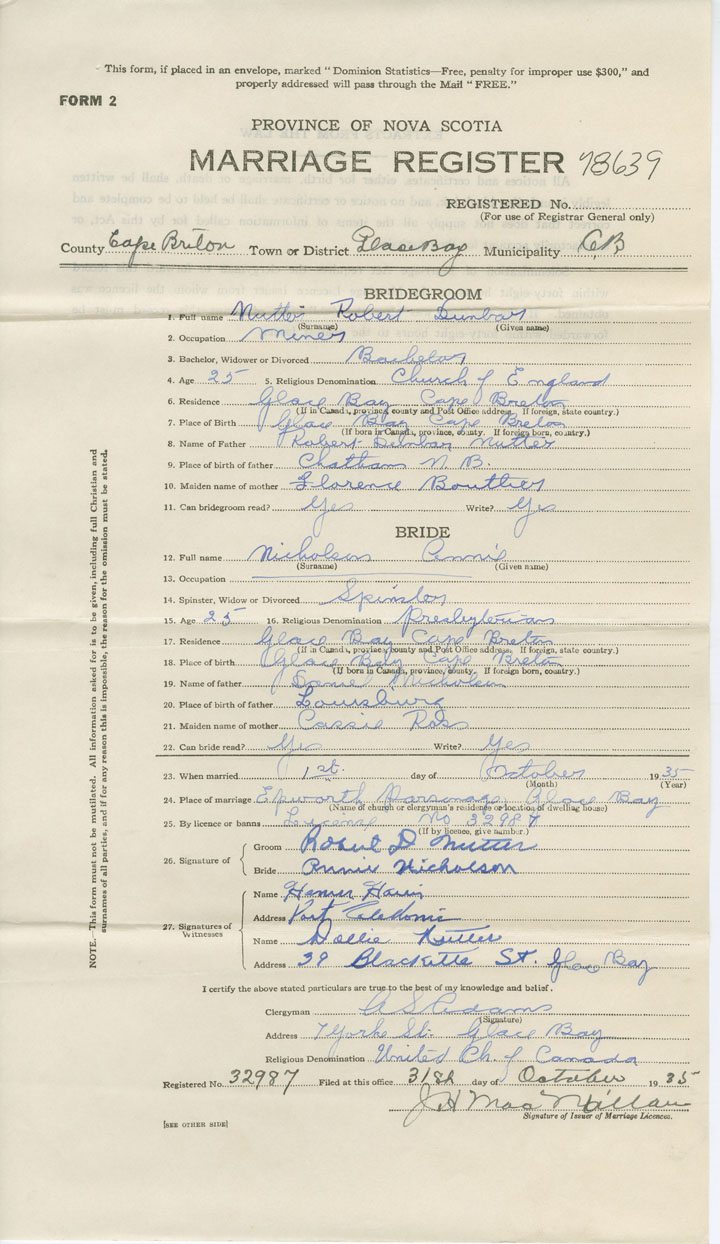 This form, if placed in an envelope, marked "Dominion Statistics—Free, penalty for improper use $300," and
properly addressed will pass through the Mail "FREE."
FORM 2
PROVINCE OF NOVA SCOTIA
MARRIAGE REGISTER 78639
REGISTERED No.
(For use of Registrar General only)
County Cape Briton Town or District Glace Bay Municipality CB
BRIDEGROOM
1. Full name Nutter Robert Dunbar
(Surname) (Given name)
2. Occupation Miner
3. Bachelor, Widower or Divorced Bachelor
4. Age 25 5. Religious Denomination Church of England
6. Residence Glace Bay Cape Breton
(If in Canada, province, county and Post Office address. If foreign, state country.)
7. Place of Birth Glace Bay Cape Breton
(If born in Canada, province, county. If foreign born, country.)
8. Name of Father Robert Dunbar Nutter
9. Place of birth of father Chatham N.B.
10. Maiden name of mother Florence Boutlier
11. Can bridegroom read? Yes Write? Yes
BRIDE
12. Full name Nicholson Annie
(Surname) (Given name)
13. Occupation
14. Spinster, Widow or Divorced Spinster
15. Age 25 16. Religious Denomination Presbyterian
17. Residence Glace Bay Cape Breton
(If in Canada, province, county and Post Office address. If foreign, state country.)
18. Place of birth Glace Bay Cape Breton
(If born in Canada, province, county. If foreign born, country.)
19. Name of father Daniel Nicholson
20. Place of birth of father Louisburg
21. Maiden name of mother Cassie Ross
22. Can bride read? Yes Write? Yes
23. When married 1st. day of October 1935
(Month) (Year)
24. Place of marriage Epworth Parsonage, Glace Bay
(Name of church or clergyman's residence or location of dwelling house)
25. By licence or banns License No 32987
(If by licence, give number.)
26. Signature of
Groom Robert D Nutter
Bride Annie Nicholson
27. Signatures of Witnesses
Name Harris
Address Port Caledonia
Name Dollie Nutter
Address 39 Blackette St. Glace Bay
I certify the above stated particulars are true to the best of my knowledge and belief.
Clergyman Adams
(Signature)
Address 7 Yorke St. Glace Bay
Religious Denomination United Ch. of Canada
Registered No. 32987 Filed at this office 31st day of October 1935
J H MacMillan
Signature of Issuer of Marriage Licences.
[SEE OTHER SIDE]
NOTE.—This form must not be mutilated. All information asked for is to be given, including full Christian and
surnames of all parties, and if for any reason this is impossible, the reason for the omission must be stated.